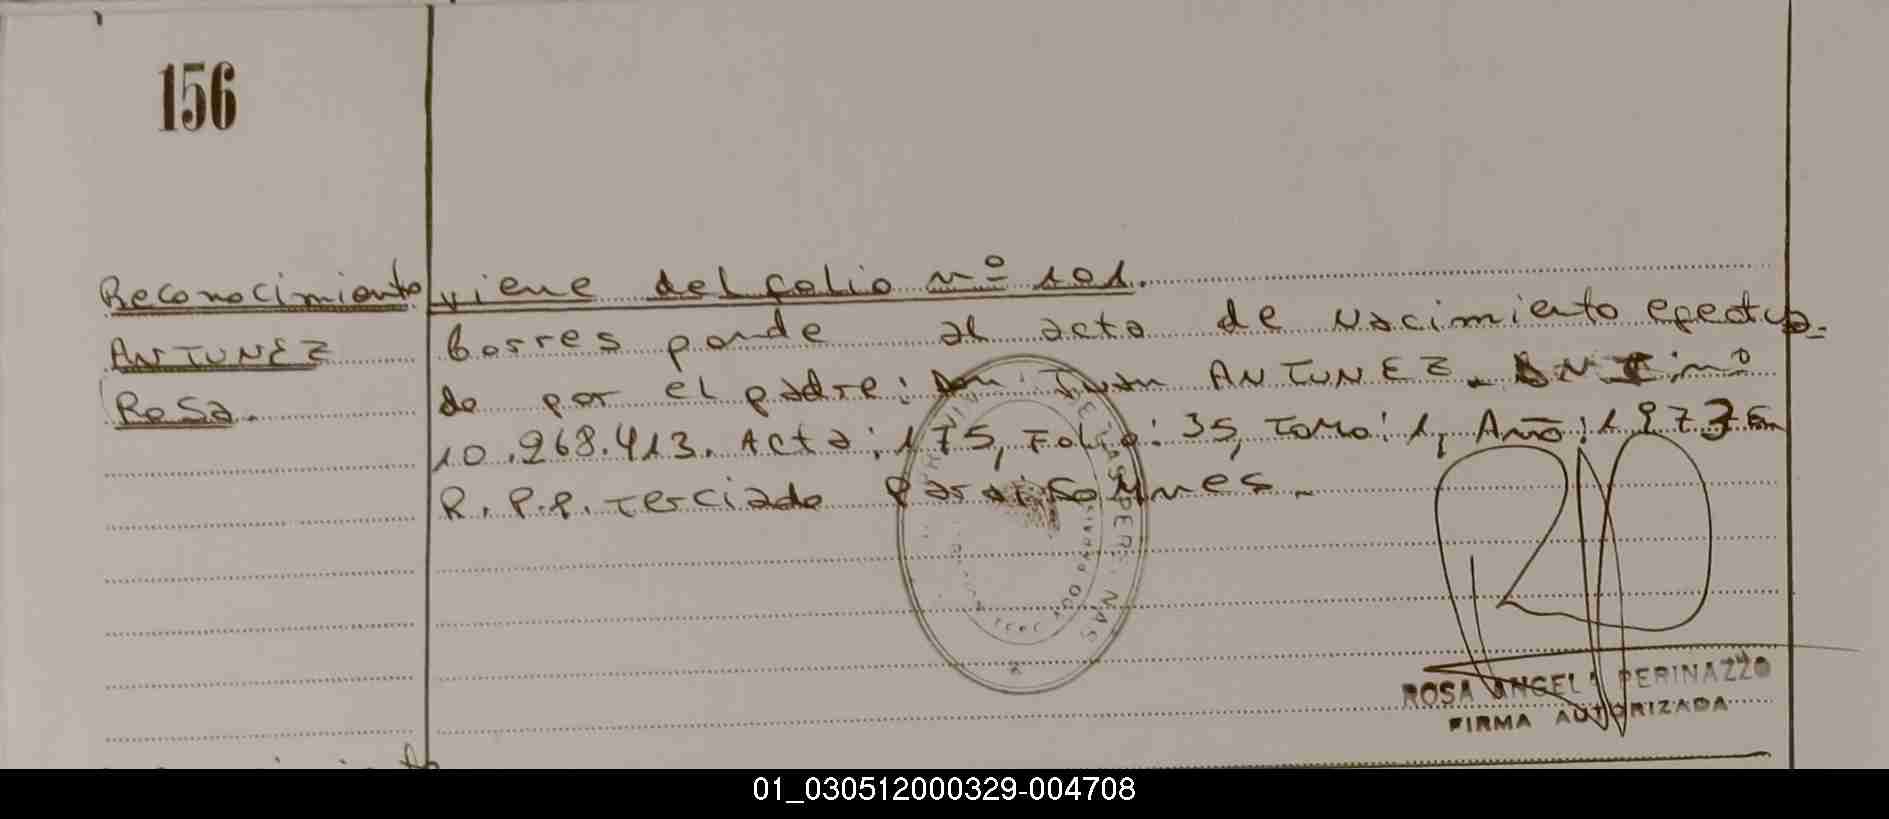 156
Reconocimiento
ANTUNEZ
Rosa.
viene del folio nº 101.
Corresponde al acta de Nacimiento efectua-
do por el padre: Don: Juan ANTUNEZ. DNI: nº
10.968.413. Acta: 175, Folio: 35, Tomo: 1, Año: 1973 En
R.P.P. Terciado Paraiso Mnes.
ROSA ANGEL PERINAZZO
FIRMA AUTORIZADA
01_030512000329-004708